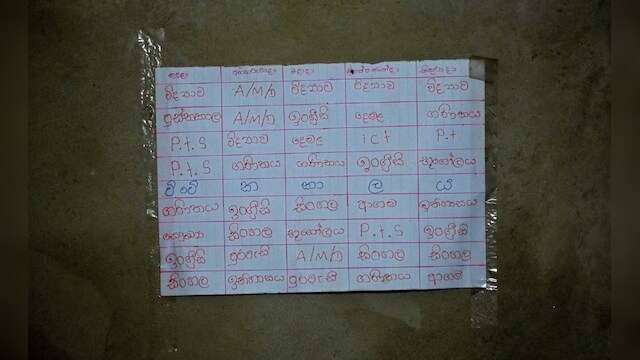 සඳුදා අඟහරුවාදා බදාදා බ්‍රහස්පතින්දා සිකුරාදා
විද්‍යාව A/M/D විද්‍යාව විද්‍යාව විද්‍යාව
පුස්තකාල A/M/D ඉංග්‍රීසි දෙමළ ගණිතය
P.t.S විද්‍යාව දෙමළ ict P.t
P.t.S ගණිතය ගණිතය ඉංග්‍රීසි භූගෝලය
වි වේ කා කා ල ය
ගණිතය ඉංග්‍රීසි සිංහල ආගම ඉතිහාසය
සෞඛ්‍ය සිංහල භූගෝලය P.t.S ඉංග්‍රීසි
ඉංග්‍රීසි පුරවැසි A/M/D සිංහල සිංහල
සිංහල ඉතිහාසය පුරවැසි ගණිතය ආගම